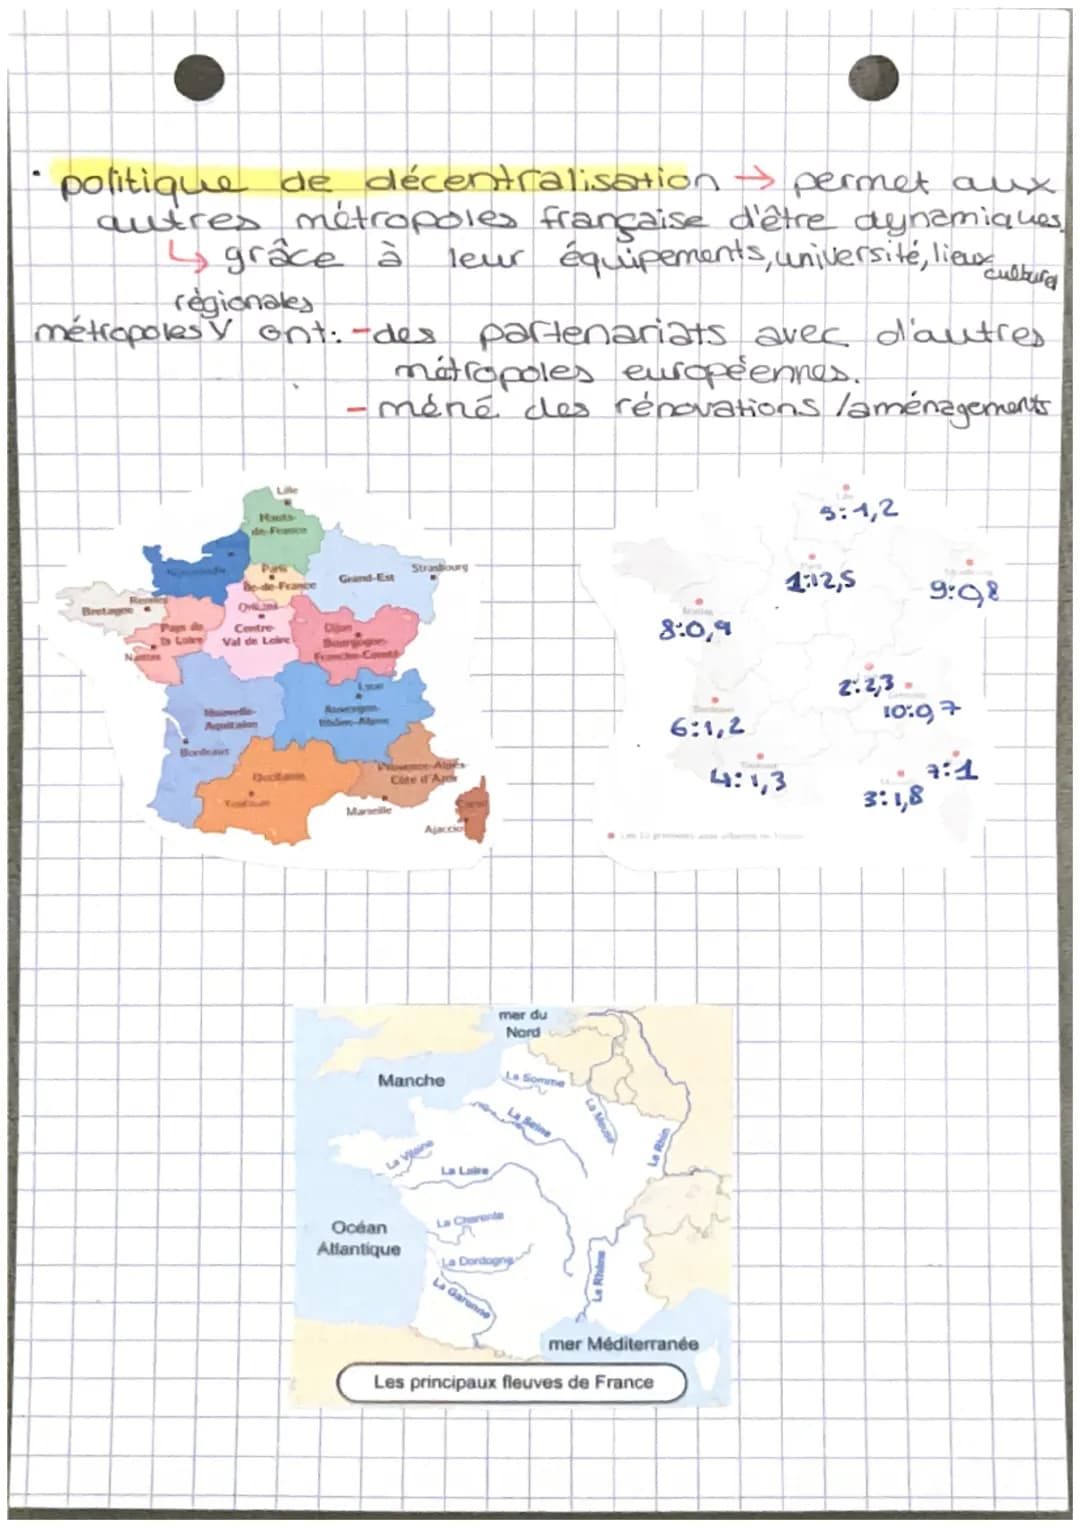 · politique de décentralisation → permet aux
autres métropoles française d'être dynamiques
↳ grâce à leur équipements, université, lieux
culturel
régionales
métropoles V ont: - des partenariats avec d'autres
métropoles européennes.
- méné des rénovations / aménagements
Lille
Hauts-
de-France
Normandie
Paris
Île-de-France
Grand-Est
Strasbourg
Rennes
Bretagne
Orléans
Pays de
la Loire
Centre-
Val de Loire
Dijon
Bourgogne-
Franche-Comté
Nantes
Lyon
Nouvelle-
Aquitaine
Auvergne-
Rhône-Alpes
Bordeaux
Provence-Alpes-
Côte d'Azur
Occitanie
Toulouse
Marseille
Corse
Ajaccio
5:1,2
1:12,5
9:0,8
8:0,9
2:2,3
10:0,7
Bordeaux
6:1,2
Toulouse
4:1,3
7:1
3:1,8
mer du
Nord
Manche
La Somme
La Seine
La Meuse
Le Rhin
La Vilaine
La Loire
Océan
Atlantique
La Charente
La Dordogne
La Garonne
Le Rhône
mer Méditerranée
Les principaux fleuves de France